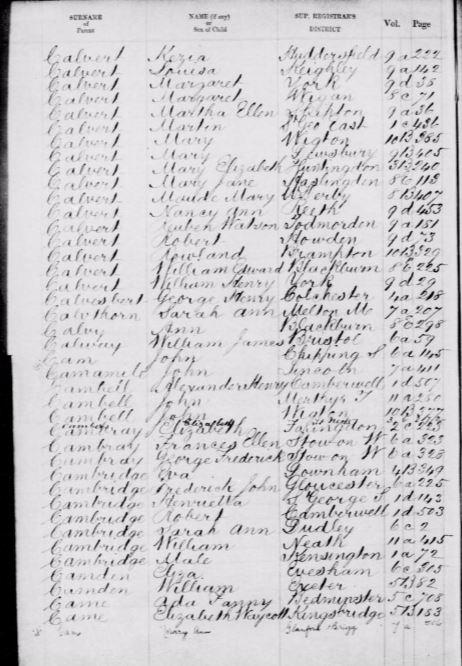 SURNAME of Parent NAME (if any) or Sex of Child SUP. REGISTRAR'S DISTRICT Vol. Page
Calvert Kezia Huddersfield 9a 222
Calvert Louisa Keighley 9a 142
Calvert Margaret York 9d 35
Calvert Margaret Wigan 8c 71
Calvert Martha Ellen 9a 36
Calvert Martin St Geo East 1c 431
Calvert Mary Wigton 10B 385
Calvert Mary Dewsbury 9B 405
Calvert Mary Elizabeth Huntingdon 3B 240
Calvert Mary Jane Haslingden 8e 113
Calvert Maude Mary W Derby 8B 407
Calvert Nancy Ann Leeth 9d 453
Calvert Reuben Watson Todmorden 9a 181
Calvert Robert Howden 9d 73
Calvert Rowland Brampton 10B 329
Calvert William Edward Blackburn 8e 225
Calvert William Henry York 9d 29
Calvesbert George Henry Colchester 4a 218
Calvthorn Sarah Ann Melton Mo 7a 207
Calvy Ann Blackburn 8e 298
Calway William James Bristol 6a 59
Cam John Chipping S 6a 145
Camamile John Lincoln 7a 411
Cambell Alexander Henry Camberwell 1d 507
Cambell John Merthyr T 11a 250
Cambell John 10B 277
Cambray Elizabeth 2c 223
Cambray Frances Ellen Stow on W 6a 323
Cambray George Frederick Stow on W 6a 328
Cambridge Eva Downham 4B 349
Cambridge Frederick John Gloucester 6a 225
Cambridge Henrietta St George S 1d 143
Cambridge Robert Camberwell 1d 503
Cambridge Sarah Ann Dudley 6c 2
Cambridge William Neath 11a 415
Cambridge Male Kensington 1a 72
Camden Eliza Evesham 6c 305
Camden William Exeter 5B 82
Came Ada Fanny Bedminster 5c 708
Came Elizabeth Waycott Kingsbridge 5B 183
Mary Ann Glanford Brigg 7a